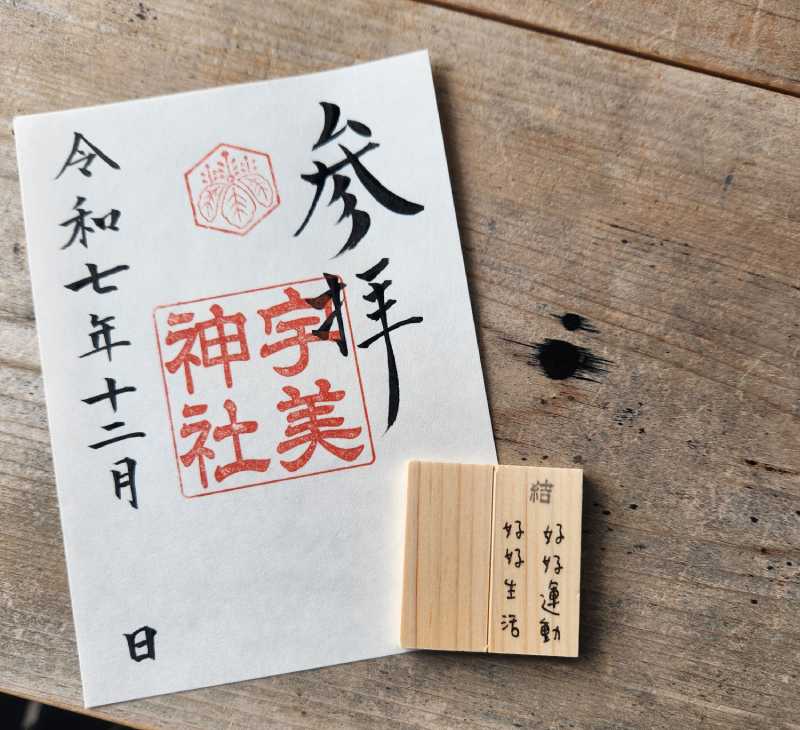 参拝
宇美
神社
令和七年十二月
日
結
好好運動
好好生活